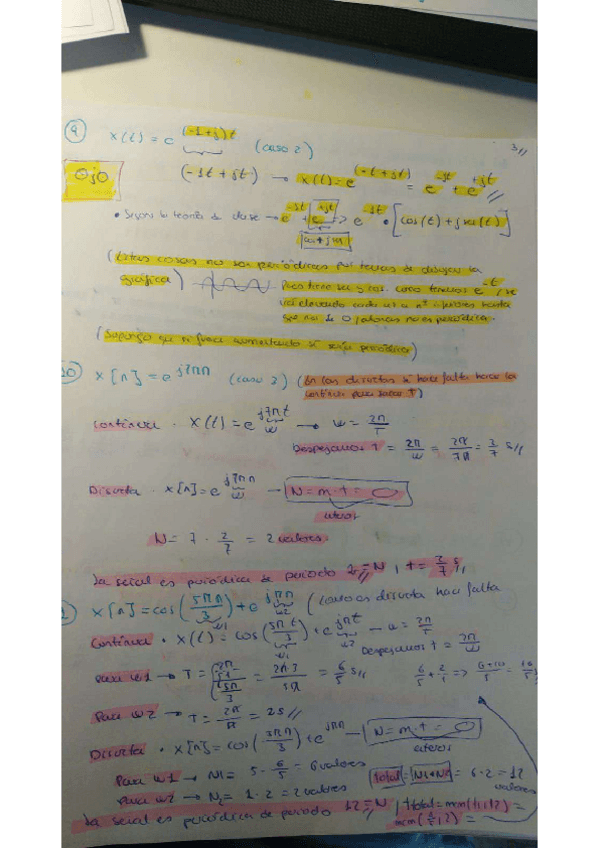 9) x(t) = e^(-1+j)t (caso 2)
3//
Ojo (-1t + jt) → x(t) = e^(-t+jt) = e^-jt + e^+jt //
• Según la teoría de clase → e^-1t + e^+jt => e^-1t • [cos(t) + j sen(t)]
cos + j sen
(Estas cosas no son periódicas por temas de dibujar la
gráfica) pues tiene sen y cos. como tenemos e^-t, se
va elevando cada vez a nº hasta
que nos de 0 no es periódica.
(Supongo que si fuera aumentando si sería periódica)
10) x[n] = e^j7πn (caso 3) (En las discretas si hace falta hacer la
continua para sacar T)
Continua • x(t) = e^j7πt → w = 2π/T
w
Despejamos T = 2π/w = 2π/7π = 2/7 s//
Discreta • x[n] = e^j7πn → N = m·t = O
w
enteros
N = 7 · 2/7 = 2 valores
La señal es periódica de periodo 2 = N, t = 2/7 s//
x[n] = cos(5πn/3) + e^jπn (como es discreta hace falta
w1 w2
Continua • x(t) = cos(5πt/3) + e^jπt → w = 2π/T
w1 w2
Despejamos t = 2π/w
Para w1 → T = 2π/(5π/3) = 2π·3/5π = 6/5 s// 6/5 + 2/1 => 6+10/5 = 16/5
Para w2 → T = 2π/π = 2s//
Discreta • x[n] = cos(5πn/3) + e^jπn → N = m·t = O
enteros
Para w1 → N1 = 5 · 6/5 = 6 valores
total = N1*N2 = 6·2 = 12
valores
Para w2 → N2 = 1·2 = 2 valores
La señal es periódica de periodo 12 = N, t total = mcm(t1,t2) =
mcm(6/5, 2) =